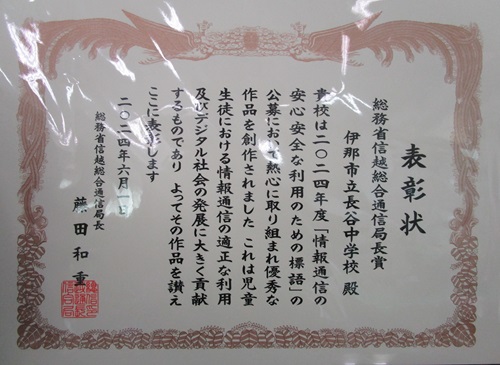 表彰状
総務省信越総合通信局長賞
伊那市立長谷中学校 殿
貴校は二〇二四年度「情報通信の
安心安全な利用のための標語」の
公募において熱心に取り組まれ優秀な
作品を創作されました これは児童
生徒における情報通信の適正な利用
及びデジタル社会の発展に大きく貢献
するものであり よってその作品を讃え
ここに表彰します
二〇二四年六月一日
総務省信越総合通信局長
藤田和重